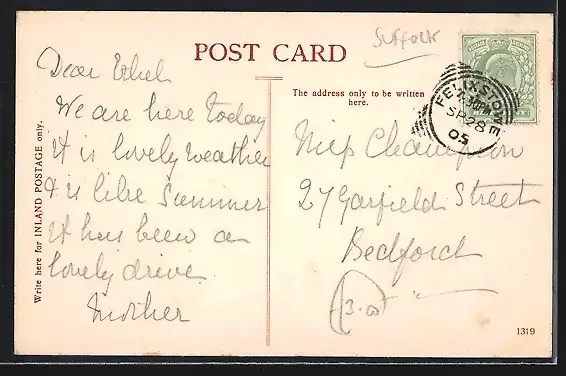 Suffolk
POST CARD
Dear Ethel
We are here today
It is lovely weather
it is like Summer
It has been a
lovely drive
Mother
Write here for INLAND POSTAGE only.
The address only to be written
here.
FELIXSTOWE
SP 28
05
Miss Champion
27 Garfield Street
Bedford
1319